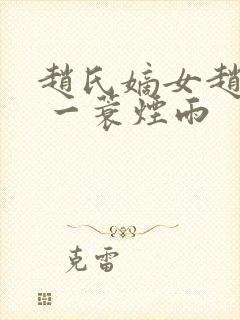 趙氏嫡女趙
一蓑煙雨
克雷